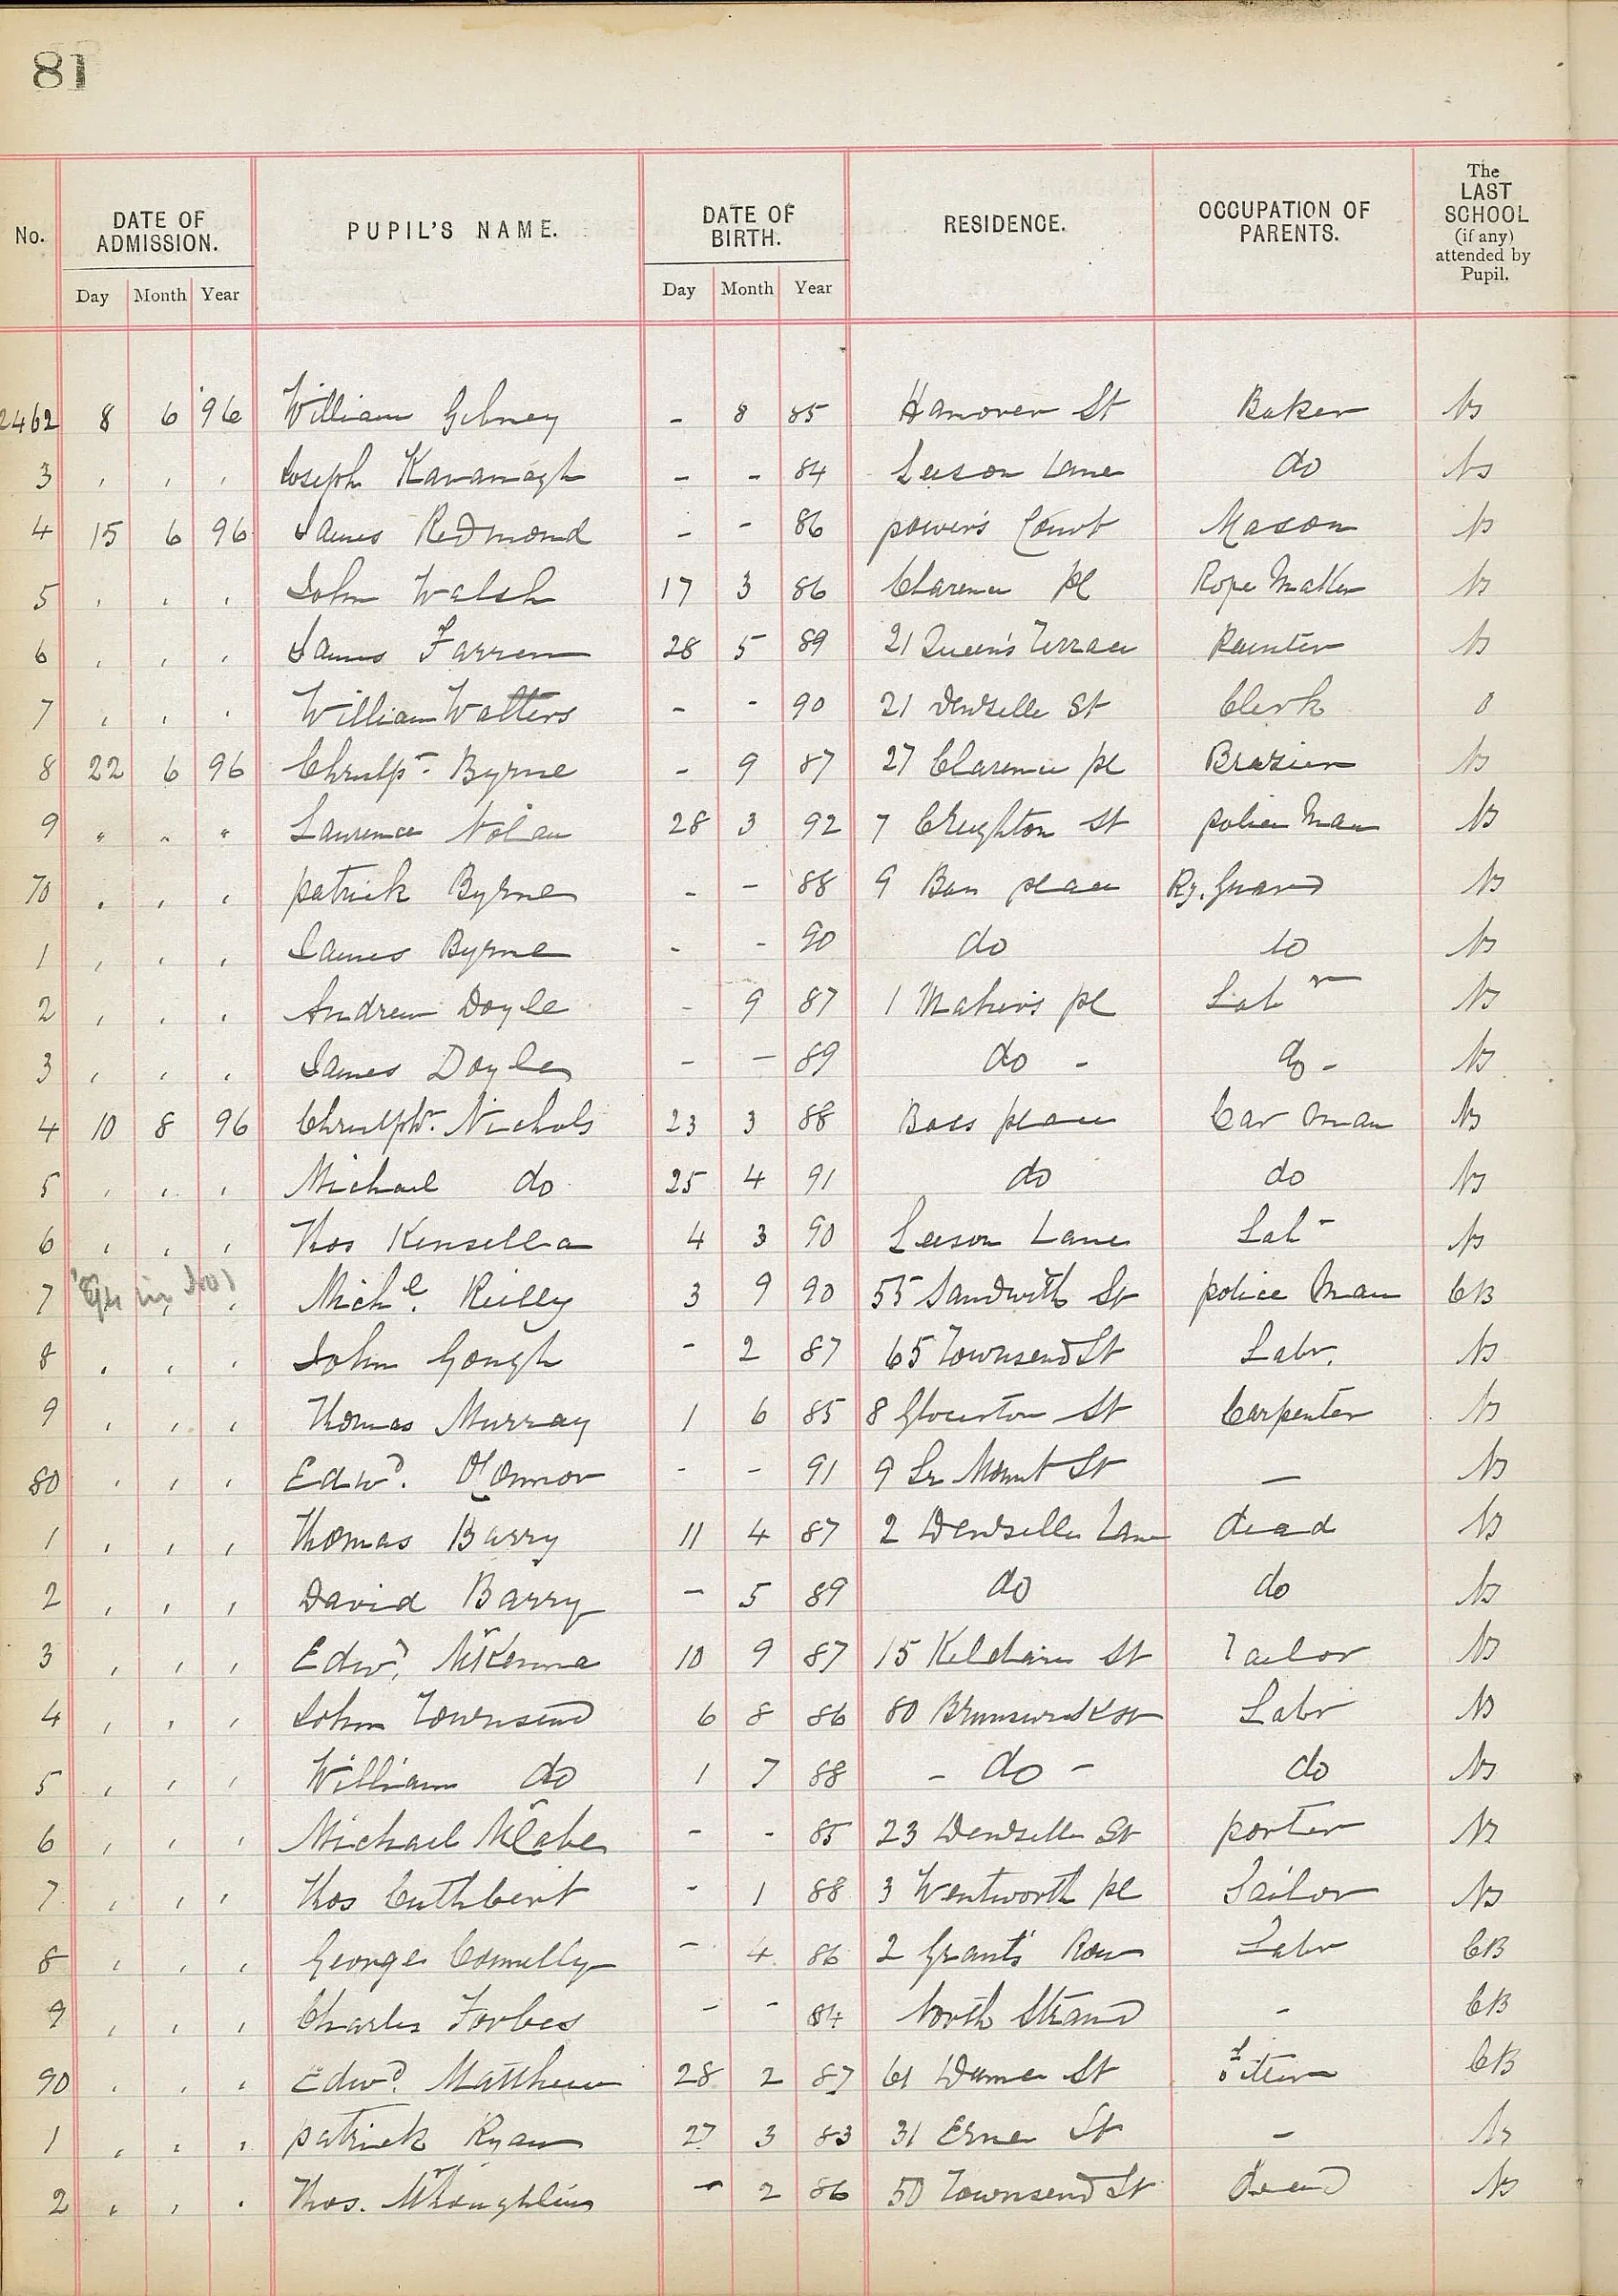 81
No. DATE OF ADMISSION. PUPIL'S NAME. DATE OF BIRTH. RESIDENCE. OCCUPATION OF PARENTS. The LAST SCHOOL (if any) attended by Pupil.
Day Month Year Day Month Year
2462 8 6 96 William Gibney - 8 85 Hanover St Baker Ns
3 , , , Joseph Kavanagh - - 84 Leeson Lane do Ns
4 15 6 96 James Redmond - - 86 power's Court Mason Ns
5 , , , John Walsh 17 3 86 Clarence pl Rope Maker Ns
6 , , , James Farren 28 5 89 21 Queen's Terrace Painter Ns
7 , , , William Watters - - 90 21 Denzelle St Clerk 0
8 22 6 96 Byrne - 9 87 27 Clarence pl Brazier Ns
9 " " " Laurence Nolan 28 3 92 7 Creighton St police Man Ns
70 , , , patrick Byrne - - 88 9 Bass place Ry. Guard Ns
1 , , , James Byrne - - 90 do do Ns
2 , , , Andrew Doyle - 9 87 1 Maher's pl Labr Ns
3 , , , James Doyle - - 89 do - do - Ns
4 10 8 96 Nichols 23 3 88 Bass place Car man Ns
5 , , , Michael do 25 4 91 do do Ns
6 , , , Thos Kensella 4 3 90 Leeson Lane Lab- Ns
7 , , Michl. Reilly 3 9 90 55 Sandwith St police Man CB
8 , , , John Gough - 2 87 65 Townsend St Labr. Ns
9 , , , Thomas Murray 1 6 85 8 Glocester St Carpenter Ns
80 , , , Edwd. O'Connor - - 91 9 Lr Mount St - Ns
1 , , , Thomas Barry 11 4 87 2 Denzelle Lane dead Ns
2 , , , David Barry - 5 89 do do Ns
3 , , , Edwd. McKenna 10 9 87 15 Kildare St Tailor Ns
4 , , , John Townsend 6 8 86 80 Brunswick St Labr Ns
5 , , , William do 1 7 88 - do - do Ns
6 , , , Michael McCabe - - 85 23 Denzelle St porter Ns
7 , , , Thos Cuthbert - 1 88 3 Wentworth pl Sailor Ns
8 , , , George Connelly - 4 86 2 Grant's Row Labr CB
9 , , , Charles Forbes - - 84 North Strand - CB
90 , , , Edwd. Matthew 28 2 87 61 Dame St CB
1 , , , patrick Ryan 27 3 83 31 Erne St - Ns
2 , , , Thos. McLoughlin - 2 86 50 Townsend St dead Ns